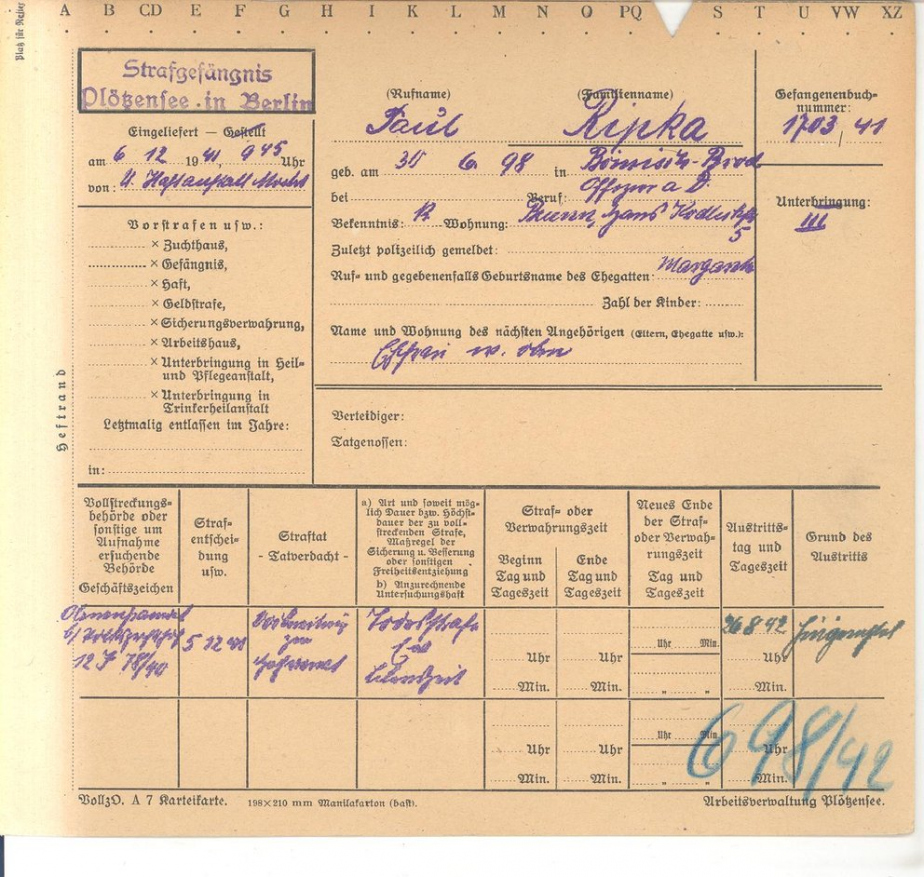 A B CD E F G H I K L M N O PQ S T U VW XZ
Strafgefängnis
Plötzensee in Berlin
Eingeliefert — Gestellt
am 6 12 1941, 9 45 Uhr
von: U. Haftanstalt Moabit
Vorstrafen usw.:
× Zuchthaus,
× Gefängnis,
× Haft,
× Geldstrafe,
× Sicherungsverwahrung,
× Arbeitshaus,
× Unterbringung in Heil-
und Pflegeanstalt,
× Unterbringung in
Trinkerheilanstalt
Letztmalig entlassen im Jahre:
in:
Heftrand
(Rufname) (Familienname)
Paul Kipka
geb. am 30 6. 98 in Bömisch-Brod
bei Beruf: Offizier a D.
Bekenntnis: R. Wohnung: Hans
5
Zuletzt polizeilich gemeldet:
Ruf- und gegebenenfalls Geburtsname des Ehegatten: Margarete
Zahl der Kinder:
Name und Wohnung des nächsten Angehörigen (Eltern, Ehegatte usw.):
Ehefrau w. oben
Gefangenenbuch-
nummer:
1703/41
Unterbringung:
III
Verteidiger:
Tatgenossen:
Vollstreckungs-
behörde oder
sonstige um
Aufnahme
ersuchende
Behörde
Geschäftszeichen
Straf-
entschei-
dung
usw.
Straftat
- Tatverdacht -
a) Art und soweit mög-
lich Dauer bzw. Höchst-
dauer der zu voll-
streckenden Strafe,
Maßregel der
Sicherung u. Besserung
oder sonstigen
Freiheitsentziehung
b) Anzurechnende
Untersuchungshaft
Straf- oder
Verwahrungszeit
Beginn
Tag und
Tageszeit
Ende
Tag und
Tageszeit
Neues Ende
der Straf-
oder Verwah-
rungszeit
Tag und
Tageszeit
Austritts-
tag und
Tageszeit
Grund des
Austritts
Oberreichsanwalt
b/ Volksgerichtshof
12 J 78/40
5 12 41
Vorbereitung
zum
Hochverrat
Todesstrafe
Uhr
Min.
Uhr
Min.
Uhr Min.
" "
26 8 42
Uhr
Min.
hingerichtet
Uhr
Min.
Uhr
Min.
Uhr Min
" "
Uhr
Min.
698/42
VollzO. A 7 Karteikarte. 198×210 mm Manilakarton (hast).
Arbeitsverwaltung Plötzensee.